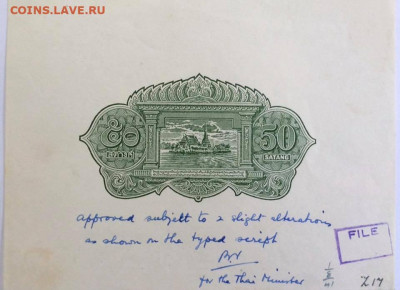 COINS.LAVE.RU
๕๐ 50
SATANG
approved subject to 2 slight alterations
as shown on the typed script
for the Thai Minister
FILE
Z17